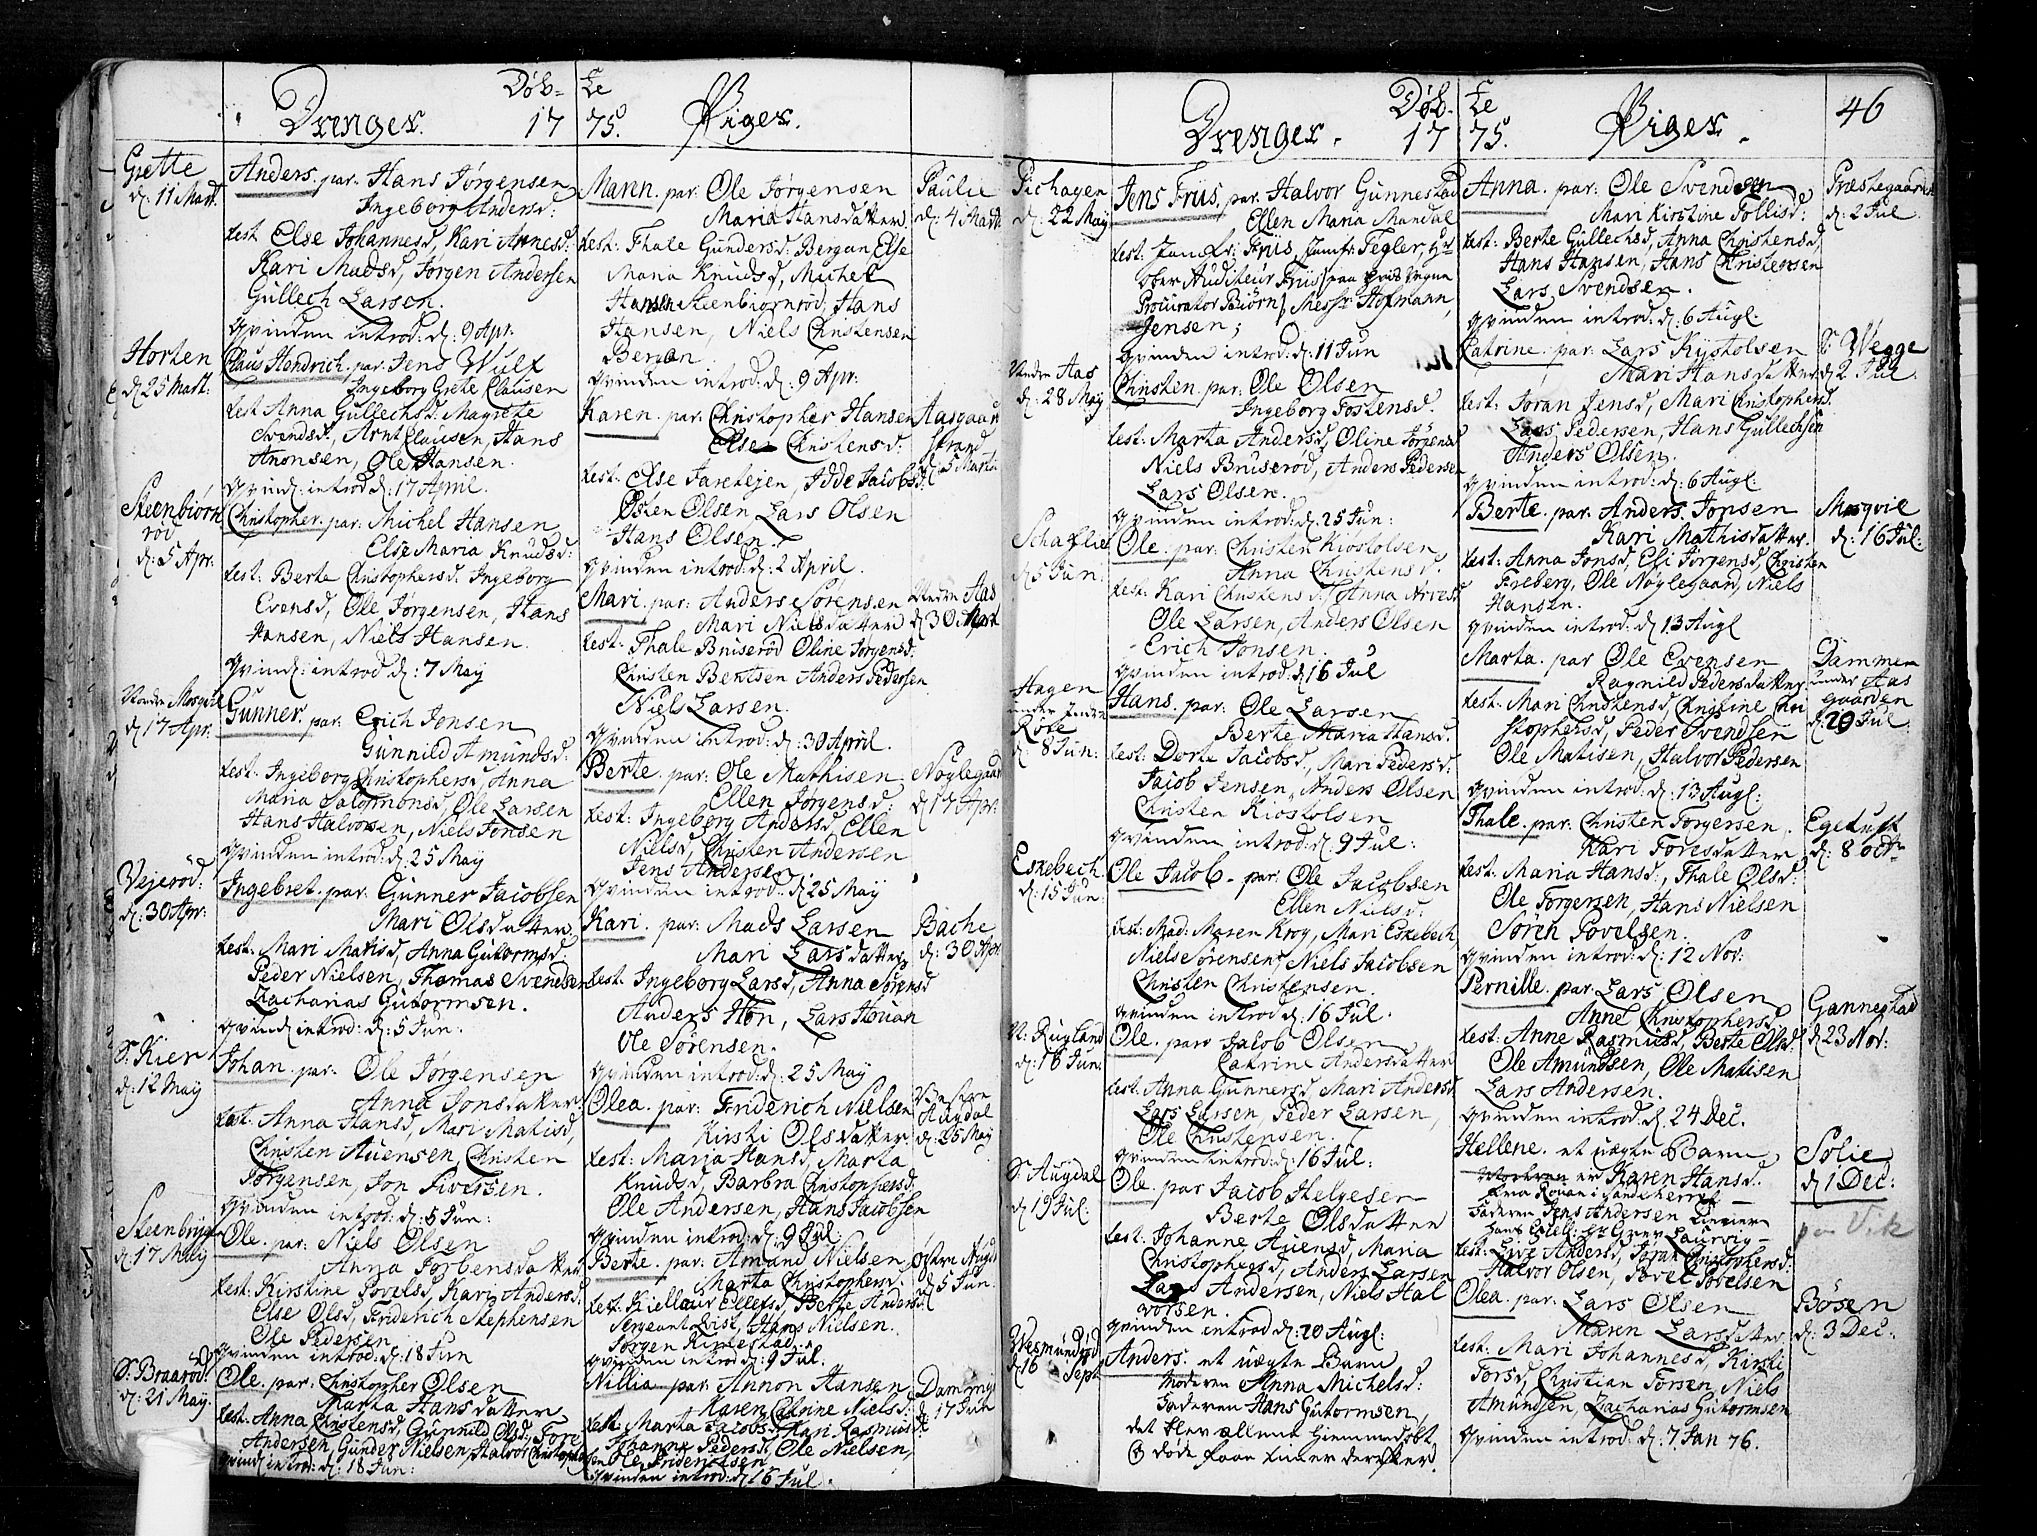 Døb= Drenger. 17
Grette
d: 11 Mart.
Anders. par. Hans Jørgensen
Ingeborg Andersd:
test Else Johannesd, Kari Arnesd:
Kari Madsd, Jørgen Andersen
Gullech Larsen.
Qvinden introd: d: 9 Apr:
Horten
d: 25 Mart.
Claus Hendrich. par. Jens Wulf
Ingeborg Grete Clausen
test Anna Gullechsd. Magrete
Svendsd., Arnt Clausen, Hans
Anonsen, Ole Hansen.
Qvind: introd d: 17 April.
Steenbiørn
rød
d: 5 Apr:
Christopher. par. Michel Hansen
Else Maria Knudsd:
test: Berte Christophersd. Ingeborg
Evensd, Ole Jørgensen, Hans
Hansen, Niels Hansen.
Qvind: introd d: 7 May
d: 17 Apr.
Gunner. par. Erich Jensen
Gunnild Amundsd:
test: Ingeborg Christophersd, Anna
Maria Salomonsd, Ole Larsen
Hans Halvorsen, Niels Jonsen
Qvinden introd: d: 25 May
Vejerød:
d: 30 Apr:
Ingebret. par: Gunner Jacobsen
Mari Olsdatter.
test: Mari Matisd, Anna Gutormsd.
Peder Nielsen, Thomas Svendsen
Zacharias Gutormsen.
Qvind introd: d: 5 Jun.
S. Kier
d: 12 May
Johan. par. Ole Jørgensen
Anna Jonsdatter.
test: Anna Hansd, Mari Matisd,
Christen Auensen, Christen
Jørgensen, Jon Siversen.
Qvinden introd: d: 5 Jun:
d: 17 May
Ole. par: Niels Olsen
Anna Torbensdatter
test: Kirstine Povelsd, Kari Andersd:
Else Olsd, Friderich Stephensen
Ole Pedersen
Qvinden introd: d: 18 Jun
S. Braarød:
d: 21 May.
Ole. par. Christopher Olsen
Marta Hansdatter
test: Anna Christensd, Gunnild Olsd, Tore
Andersen, Gunder Nielsen, Halvor Christophersen
Qvind introd: d: 18 Jun:
te
75. Piger.
Mann. par: Ole Jørgensen
Maria Hansdatter
Paulie
d: 4 Mart.
test: Thale Gundersd: Bergan Else
Maria Knudsd, Michel
Hansen Steenbiornrød, Hans
Hansen, Niels Christensen
Bergan.
Qvinden introd: d: 9 Apr:
Karen. par: Christopher Hansen
Else Christensd:
Aasgaard
strand
d: 5 Martii
test: Else Faretejen, Idde Jacobsd:
Østen Olsen Lars Olsen
Hans Olsen.
Qvinden introd: d: 2 April.
Mari. par: Anders Sørensen
Mari Nielsdatter
Nedre Aas
d: 30 Mart
test: Thale Bruserød Oline Jørgensd.
Christen Bentsen Anders Pedersen
Niels Larsen.
Qvinden introd: d: 30 April.
Berte. par: Ole Mathisen
Ellen Jørgensd:
Nøglegaar
d: 17 Apr:
test: Ingeborg Andersd, Ellen
Nielsd, Christen Andersen
Jens Andersen.
Qvinden introd: d: 25 May
Kari. par: Mads Larsen
Mari Larsdatter
Bache
d: 30 Apr.
test: Ingeborg Larsd, Anna Sørensd
Anders Høn, Lars Houan
Ole Sørensen.
Qvinden introd: d: 25 May
Olea. par: Friderich Nielsen
Kirsti Olsdatter.
Vestere
Augdal
d: 25 May
test: Maria Hansd, Marta
Knudsd, Barbra Christophersd.
Ole Andersen, Hans Jacobsen
Qvinden introd: d: 9 Jul.
Berte. par: Amand Nielsen
Marta Christophersd.
d: 5 Jun.
test: Kiellaur Ellefsd, Berte Andersd.
Sergeant Qvist, Hans Nielsen.
Qvinden introd: d: 9 Jul.
Nillia. par. Annon Hansen
Karen Catrine Nielsd:
d: 17 Jun
test: Marta Jacobsd, Kari Rasmusd:
Johanne Pedersd, Ole Nielsen,
Ole Friderichsen
Qvinden introd: d: 16 Jul.
Døb= Drenger. 17
Pichagen
d: 22 May
Jens Friis. par. Halvor Gunnestad
Ellen Maria Mandal
test: Jomfr: Friis, Jomfr: Tegler, Hr
Ober Auditeur Friis
Procurator Biørn, Messr: Hofmann,
Jensen;
Qvinden introd: d: 11 Jun
Nedre Aas
d: 28 May
Christen. par: Ole Olsen
Ingeborg Tostensd.
test: Marta Andersd, Oline Jørgensd
Niels Bruserød, Anders Pedersen
Lars Olsen.
Qvinden introd: d: 25 Jun:
d: 5 Jun:
Ole. par: Christen Kiostolsen
Anna Christensd.
test: Kari Christensd, Anna Arvesd
Ole Larsen, Anders Olsen
Erich Jonsen.
Qvinden introd: d 16 Jul
Hagen
under
Røre
d: 8 Jun:
Hans. par: Ole Larsen
Berte Maria Hansd.
test: Dorte Jacobsd, Mari Pedersd:
Jacob Jensen, Anders Olsen
Christen Kiostolsen
Qvinden introd: d: 9 Jul:
Eskebech
d: 15 Jun.
Ole Jacob. par: Ole Jacobsen
Ellen Nielsd:
test: Mad: Maren Krog, Mari Eskebech
Niels Sørensen, Niels Jacobsen
Christen Christensen.
Qvinden introd d: 16 Jul.
N: Rugland
d: 16 Jun:
Ole. par Jacob Olsen
Catrine Andersdatter
test: Anna Gunnersd, Mari Andersd
Lars Larsen, Peder Larsen,
Ole Christensen.
Qvinden introd: d: 16 Jul:
S. Augdal
d 19 Jul:
Ole. par Jacob Helgesen
Berte Olsdatter
test: Johanne Auensd, Maria
Christophersd, Anders Larsen
Lars Andersen, Niels Hal
vorsen.
Qvinden introd: d: 20 Augl:
d 16 Sept
Anders. et uægte Barn
Moderen Anna Michelsd:
Faderen Hans Gutormsen,
det blev allene hiemmedøbt
te 46
75. Piger.
Anna. par: Ole Svendsen
Mari Kirstine Follisd:
Præstegaarden
d: 2 Jul.
test: Berte Gullechsd, Anna Christensd,
Hans Hansen, Hans Christensen
Lars Svendsen.
Qvinden introd: d: 6 Augl:
Catrine. par: Lars Kystolsen
Mari Hansdatter
S Wegge
d 2 Jul.
test: Joran Jensd, Mari Christophersd.
Lars Pedersen, Hans Gullechsen
Anders Olsen.
Qvinden introd: d: 6 Augl:
Berte. par: Anders Jonsen
Kari Mathisdatter.
d: 16 Jul:
test: Anna Jonsd, Elsi Jørgensd, Christen
Freberg, Ole Nøglegaard, Niels
Hansen.
Qvinden introd: d 13 Augl
Marta. par Ole Evensen
Ragnild Pedersdatter
Dammen
under Aas
gaarden
d: 20 Jul.
test: Mari Christensd, Christine Chri
stophersd, Peder Svendsen
Ole Matisen, Halvor Pedersen
Qvinden introd: d: 13 Augl:
Thale. par: Christen Torgersen
Kari Toresdatter
d: 8 octr
test: Maria Hansd:, Thale Olsd:
Ole Torgersen, Hans Nielsen
Sören Povelsen.
Qvinden introd: d: 12 Nov:
Pernille. par. Lars Olsen
Anne Christophersd
Gannestad
d 23 Nov:
test: Anne Rasmusd, Berte Olsd.
Ole Amundsen, Ole Matisen
Lars Andersen.
Qvinden introd: d. 24 Dec.
Hellene. et uægte Barn
Moderen er Karen Hansd.
Faderen Jens Andersen
Solie
d 1 Dec:
test: Live Andersd, Joran Christophersd:
Halvor Olsen, Povel Povelsen
Olea. par: Lars Olsen
Maren Larsdatter
Bösen
d: 3 Dec:
test: Mari Johannesd, Kirsti
Torsd, Christian Torsen, Niels
Amundsen, Zacharias Gutormsen
Qvinden introd: d: 7 Jan 76.